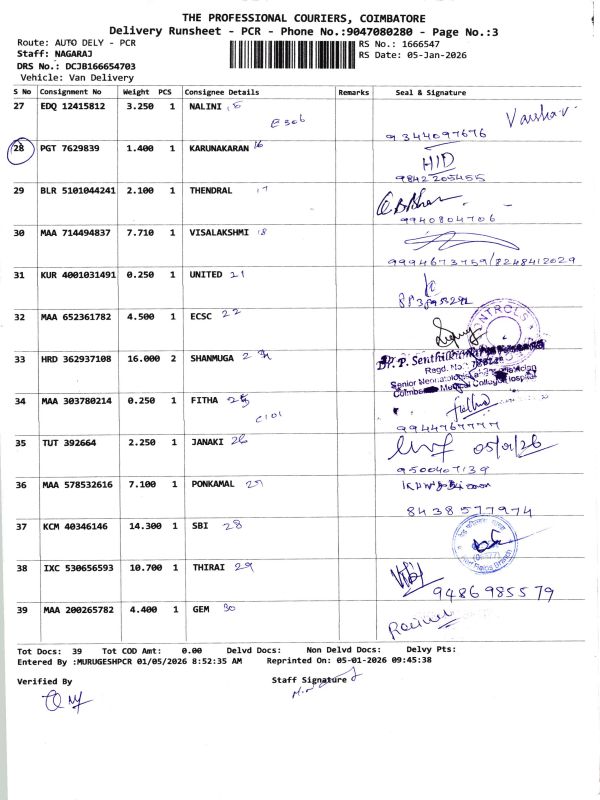 THE PROFESSIONAL COURIERS, COIMBATORE
Delivery Runsheet - PCR - Phone No.:9047080280 - Page No.:3
Route: AUTO DELY - PCR RS No.: 1666547
Staff: NAGARAJ RS Date: 05-Jan-2026
DRS No.: DCJB166654703
Vehicle: Van Delivery
S No Consignment No Weight PCS Consignee Details Remarks Seal & Signature
27 EDQ 12415812 3.250 1 NALINI
E306
9344097676
28 PGT 7629839 1.400 1 KARUNAKARAN 16
HID
9842205455
29 BLR 5101044241 2.100 1 THENDRAL 17
9940804706
30 MAA 714494837 7.710 1 VISALAKSHMI 18
9994673759/8248412029
31 KUR 4001031491 0.250 1 UNITED 21
32 MAA 652361782 4.500 1 ECSC 22
33 HRD 362937108 16.000 2 SHANMUGA
Dr. P. Senthilkumar
Regd. No.
Senior Neonatologist
Coimbatore Medical College Hospital
34 MAA 303780214 0.250 1 FITHA 25
C101
9944767777
35 TUT 392664 2.250 1 JANAKI 26
05/01/26
9500407139
36 MAA 578532616 7.100 1 PONKAMAL 27
8438577974
37 KCM 40346146 14.300 1 SBI 28
38 IXC 530656593 10.700 1 THIRAI 29
9486985579
39 MAA 200265782 4.400 1 GEM 30
Tot Docs: 39 Tot COD Amt: 0.00 Delvd Docs: Non Delvd Docs: Delvy Pts:
Entered By :MURUGESHPCR 01/05/2026 8:52:35 AM Reprinted On: 05-01-2026 09:45:38
Verified By Staff Signature